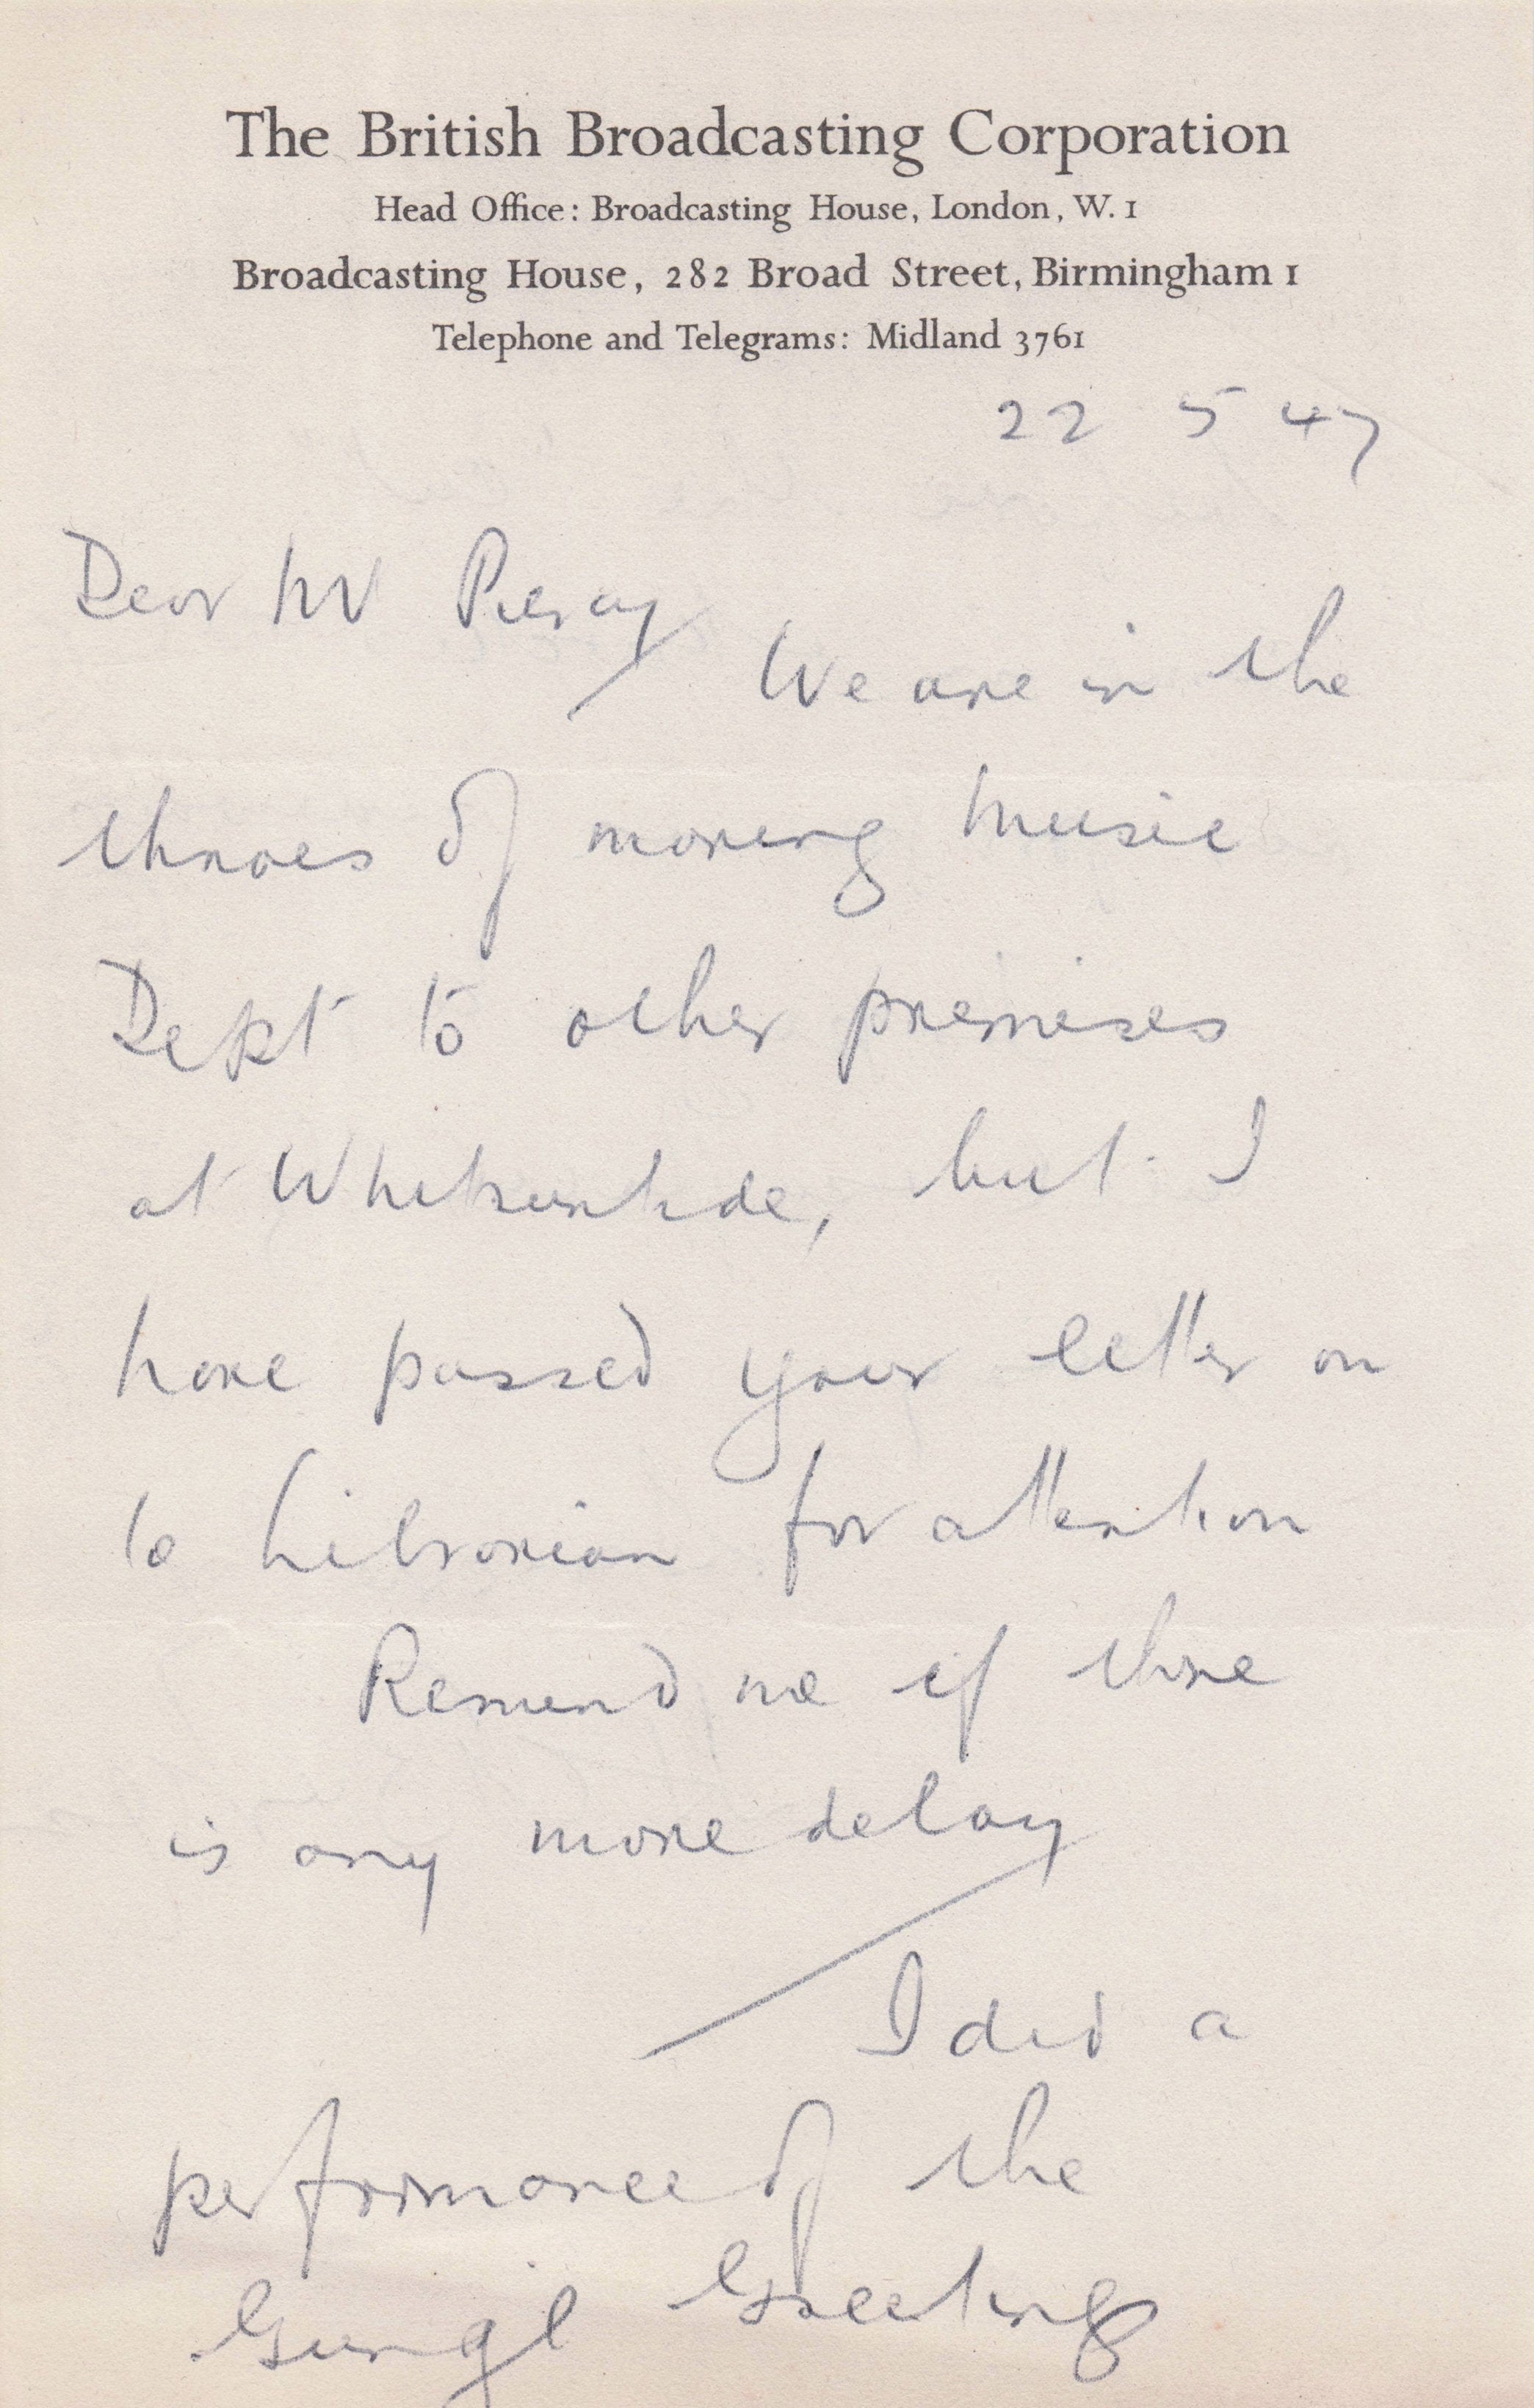 The British Broadcasting Corporation
Head Office: Broadcasting House, London, W. 1
Broadcasting House, 282 Broad Street, Birmingham 1
Telephone and Telegrams: Midland 3761
22 5 47
Dear Mr
We are in the
throes of moving Music
Dept to other premises
at Whitsuntide, but I
have passed your letter on
to Librarian for attention
Remind me if there
is any more delay
I did a
performance of the
Gung'l Greetings